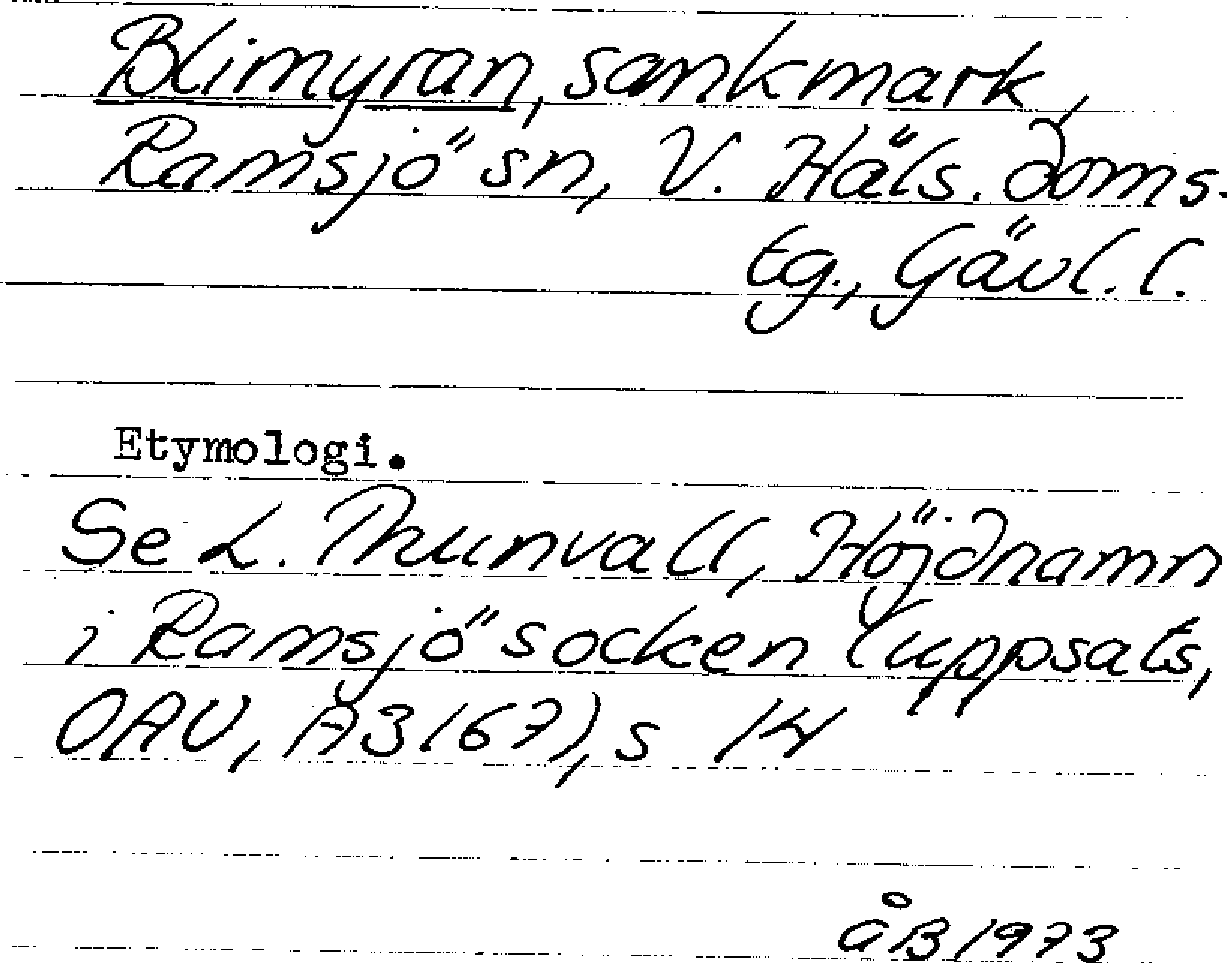 Blimyran, sankmark,
Ramsjö sn, V. Häls. doms-
tg., Gävl. l.
Etymologi.
Se L. Thunvall, Höjdnamn
i Ramsjö socken (uppsats,
OAU, A3167), s 14
åB 1973